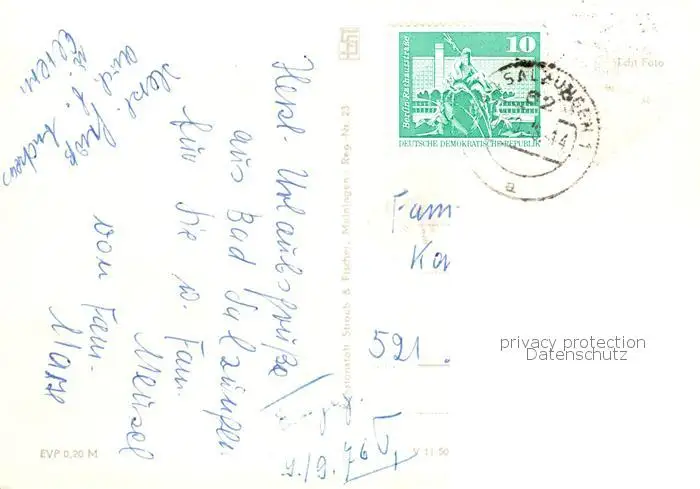 Herzl. Urlaubsgrüße
aus Bad Salzungen
für Sie u. Fam.
Meusel
von Fam.
Marx
Herzl.
auch
EVP 0,20 M
Straub & Fischer, Meiningen, Reg. Nr. 23
V 11 50
10
Berlin, Rathausstraße
DEUTSCHE DEMOKRATISCHE REPUBLIK
SALZUNGEN 1
62
a
Echt Foto
Fam.
Ka
521
privacy protection
Datenschutz